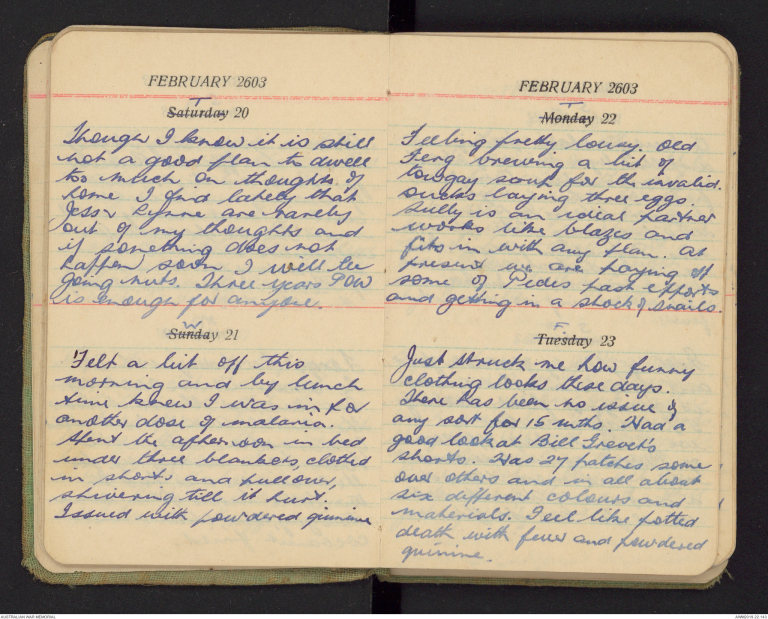 FEBRUARY 2603
T
Saturday 20
Though I know it is still
not a good plan to dwell
too much on thoughts of
home I find lately that
Jess & Lynne are rarely
out of my thoughts and
if something does not
happen soon I will be
going nuts. Three years POW
is enough for anyone.
W
Sunday 21
Felt a bit off this
morning and by lunch
time knew I was in for
another dose of malaria.
Spent the afternoon in bed
under three blankets, clothed
in shorts and pullover,
shivering till it hurt.
Issued with powdered quinine
FEBRUARY 2603
T
Monday 22
Feeling pretty lousy. Old
Ferg brewing a bit of
towgay soup for the invalid.
Ducks laying three eggs.
Sully is an ideal partner
works like blazes and
fits in with any plan. At
present we are paying off
some of Pides past efforts
and getting in a stock of snails.
F
Tuesday 23
Just struck me how funny
clothing looks these days.
There has been no issue of
any sort for 15 mths. Had a
good look at Bill Grever's
shorts. Has 27 patches, some
over others and in all about
six different colours and
materials. Feel like potted
death with fever and powdered
quinine.
AUSTRALIAN WAR MEMORIAL